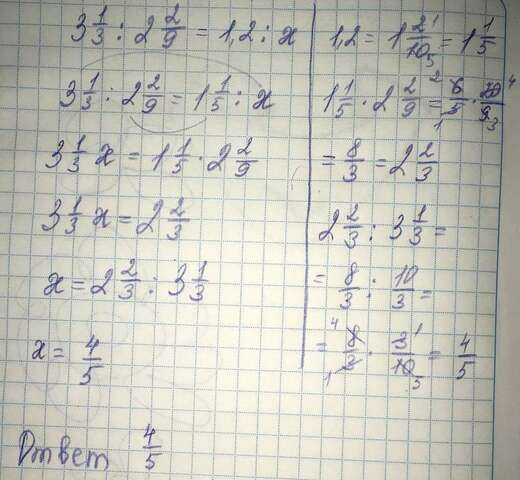 3 1/3 : 2 2/9 = 1,2 : x
3 1/3 : 2 2/9 = 1 1/5 : x
3 1/3 x = 1 1/5 · 2 2/9
3 1/3 x = 2 2/3
x = 2 2/3 : 3 1/3
x = 4/5
Ответ 4/5
1,2 = 1 2/10 = 1 1/5
1 1/5 · 2 2/9 = 6/5 · 20/9
= 8/3 = 2 2/3
2 2/3 : 3 1/3 =
= 8/3 : 10/3 =
= 8/3 · 3/10 = 4/5